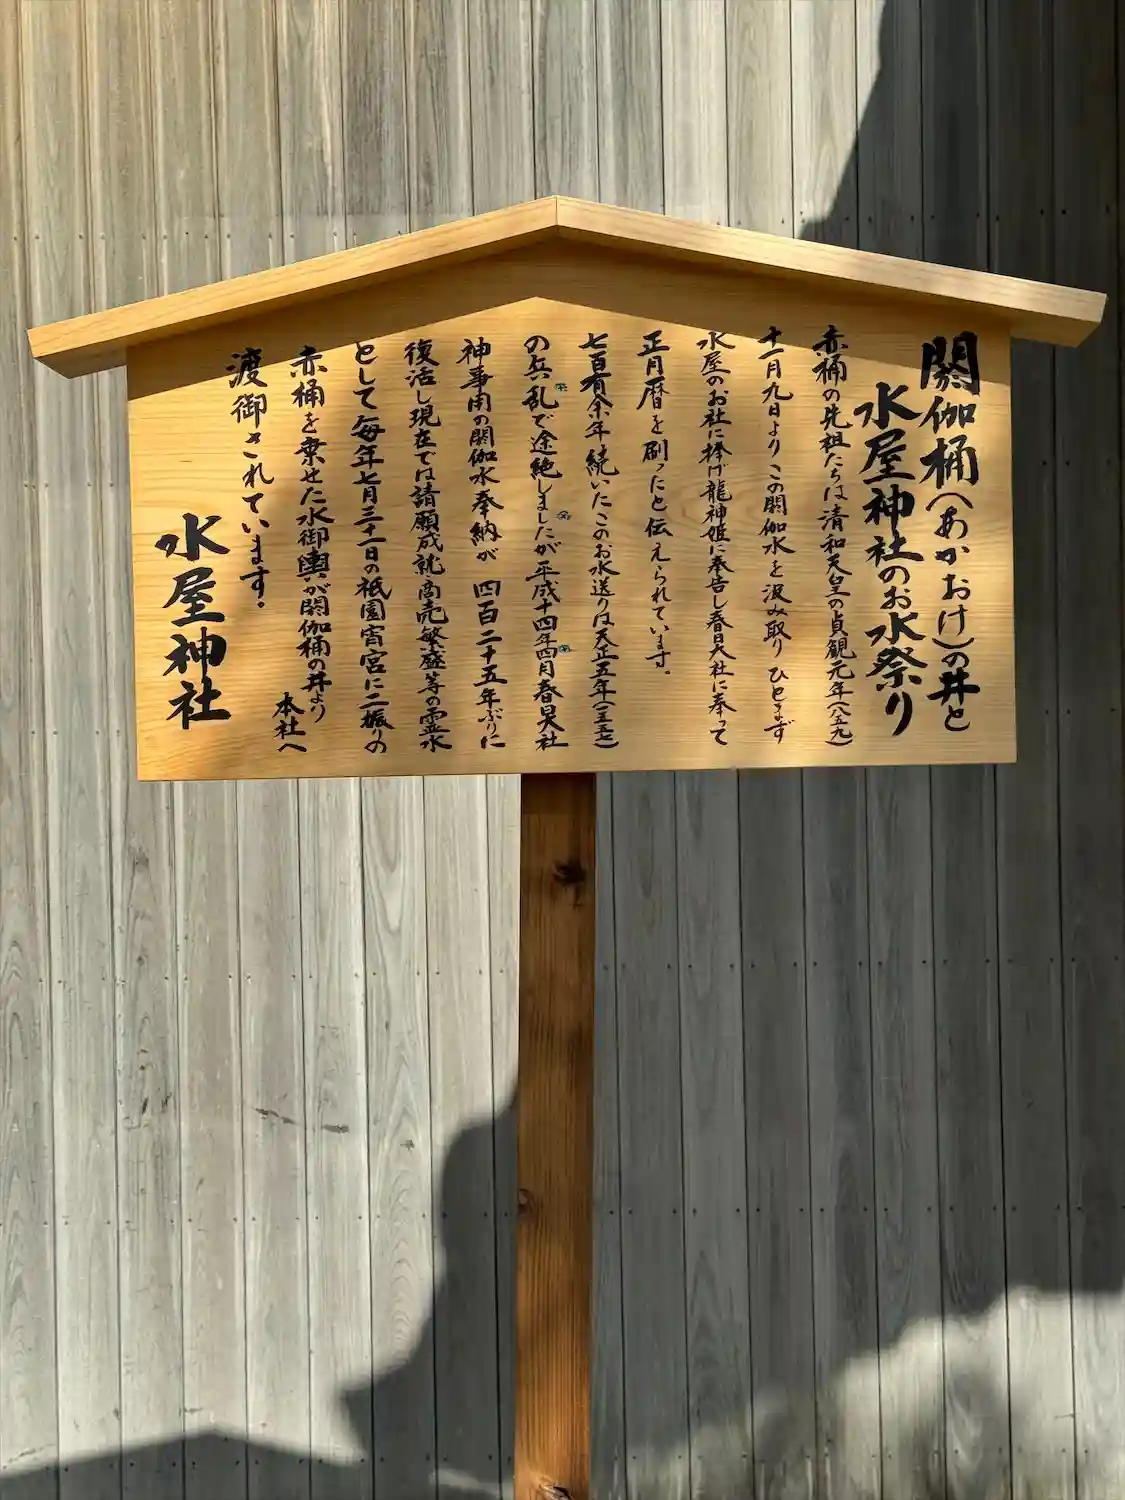 閼伽桶(あかおけ)の井と
水屋神社のお水祭り
赤桶の先祖たちは清和天皇の貞観元年(八五九)
十一月九日よりこの閼伽水を汲み取り ひとまず
水屋のお社に捧げ龍神姫に奉告し春日大社に奉って
正月暦を刷ったと伝えられています。
七百有余年続いたこのお水送りは天正五年(一五七七)
の兵乱で途絶しましたが平成十四年四月春日大社
神事用の閼伽水奉納が 四百二十五年ぶりに
復活し現在では請願成就商売繁盛等の霊水
として毎年七月三十一日の祇園宵宮に二振りの
赤桶を乗せた水御輿が閼伽桶の井より
本社へ
渡御されています。
水屋神社